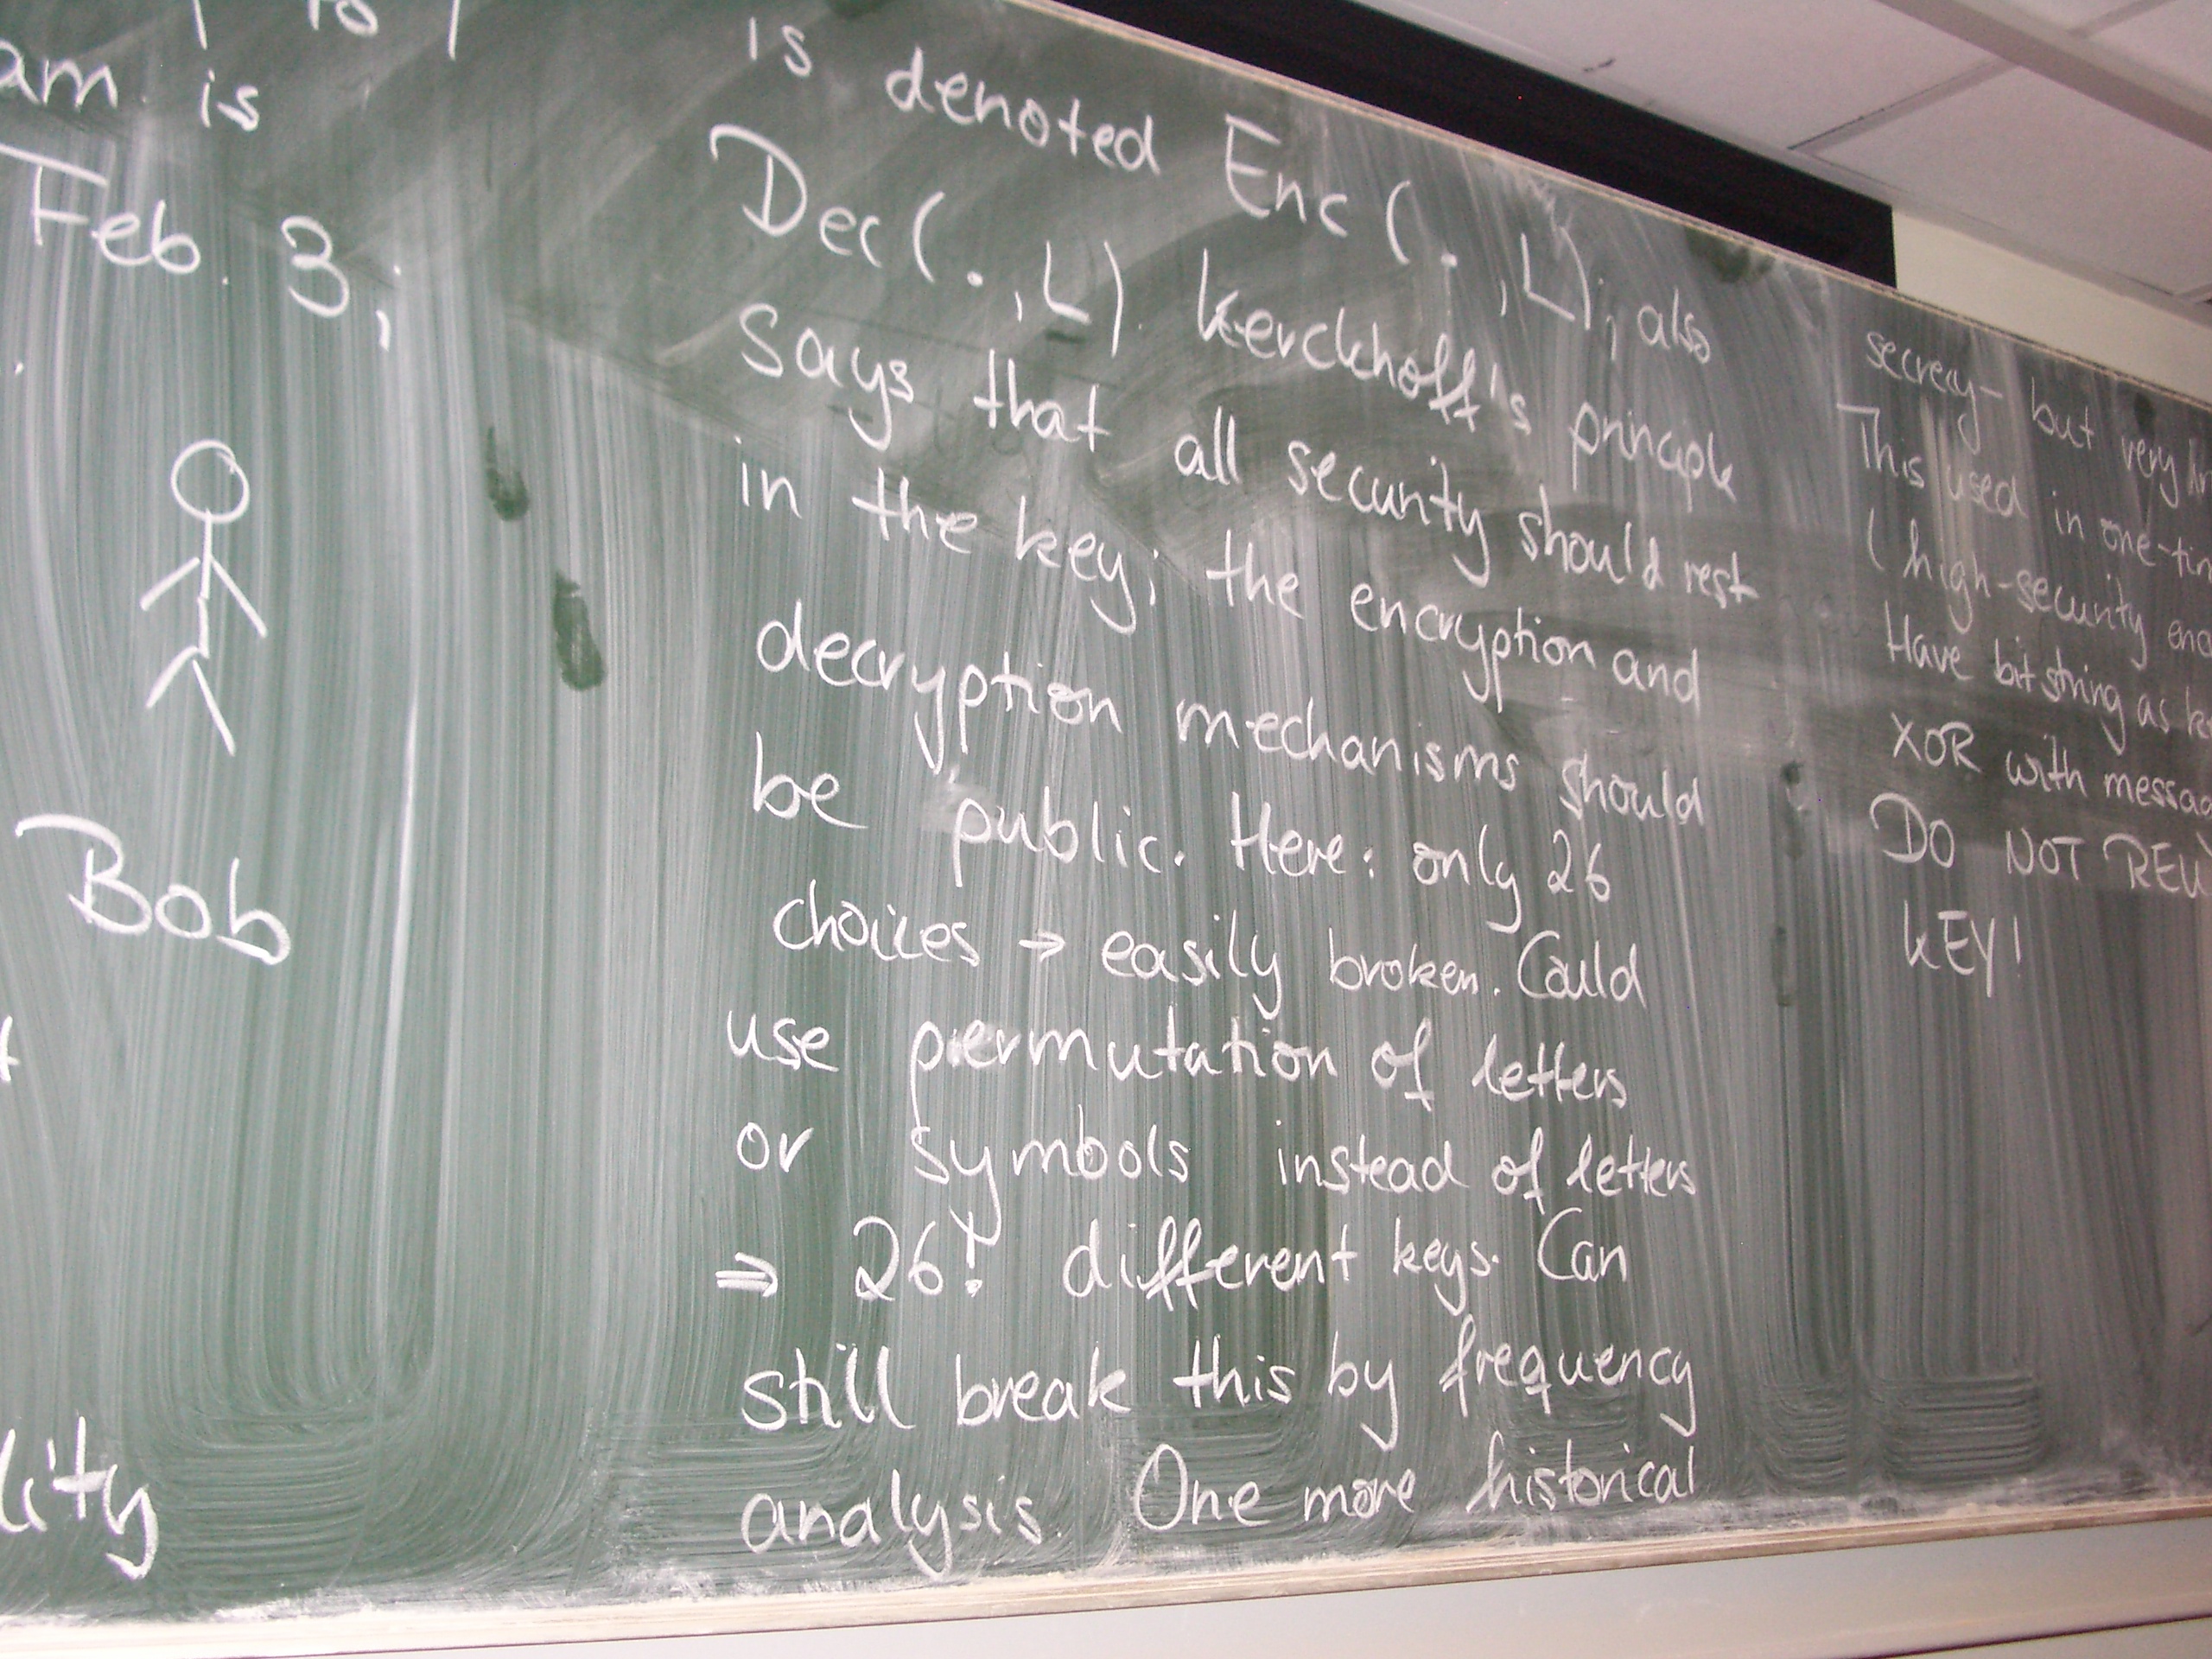 to
am is
Feb. 3,
Bob
lity
is denoted Enc(·,L); also
Dec(·,L). Kerckhoff's principle
says that all security should rest
in the key; the encryption and
decryption mechanisms should
be public. Here: only 26
choices → easily broken. Could
use permutation of letters
or symbols instead of letters
⇒ 26! different keys. Can
still break this by frequency
analysis. One more historical
secrecy - but very
This used in one-tim
(high-security enc
Have bitstring as ke
XOR with messag
DO NOT REU
KEY!